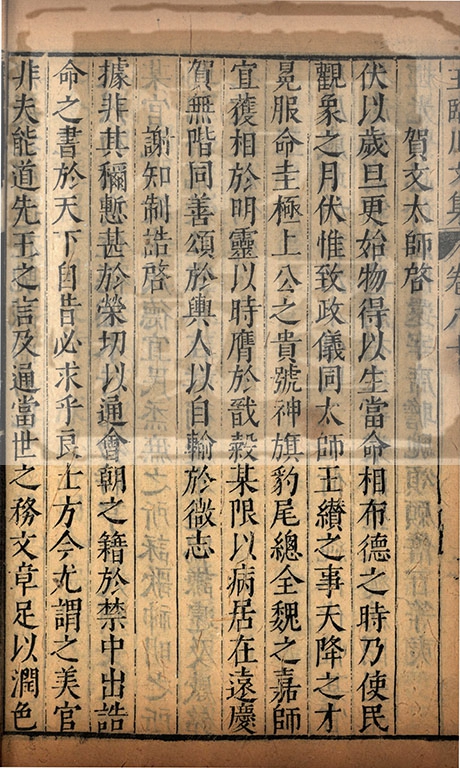 王臨川文集 卷八十
賀文太師啓
伏以歲旦更始物得以生當命相布德之時乃使民
觀象之月伏惟致政儀同太師王纘之事天降之才
冕服命圭極上公之貴號神旗豹尾總全魏之嘉師
宜獲相於明靈以時膺於戩穀某限以病居在遠慶
賀無階同善頌於輿人以自輸於微志
謝知制誥啓
據非其稱慙甚於榮切以通會朝之籍於禁中出誥
命之書於天下自昔必求乎良士方今尤謂之美官
非夫能道先王之言及通當世之務文章足以潤色